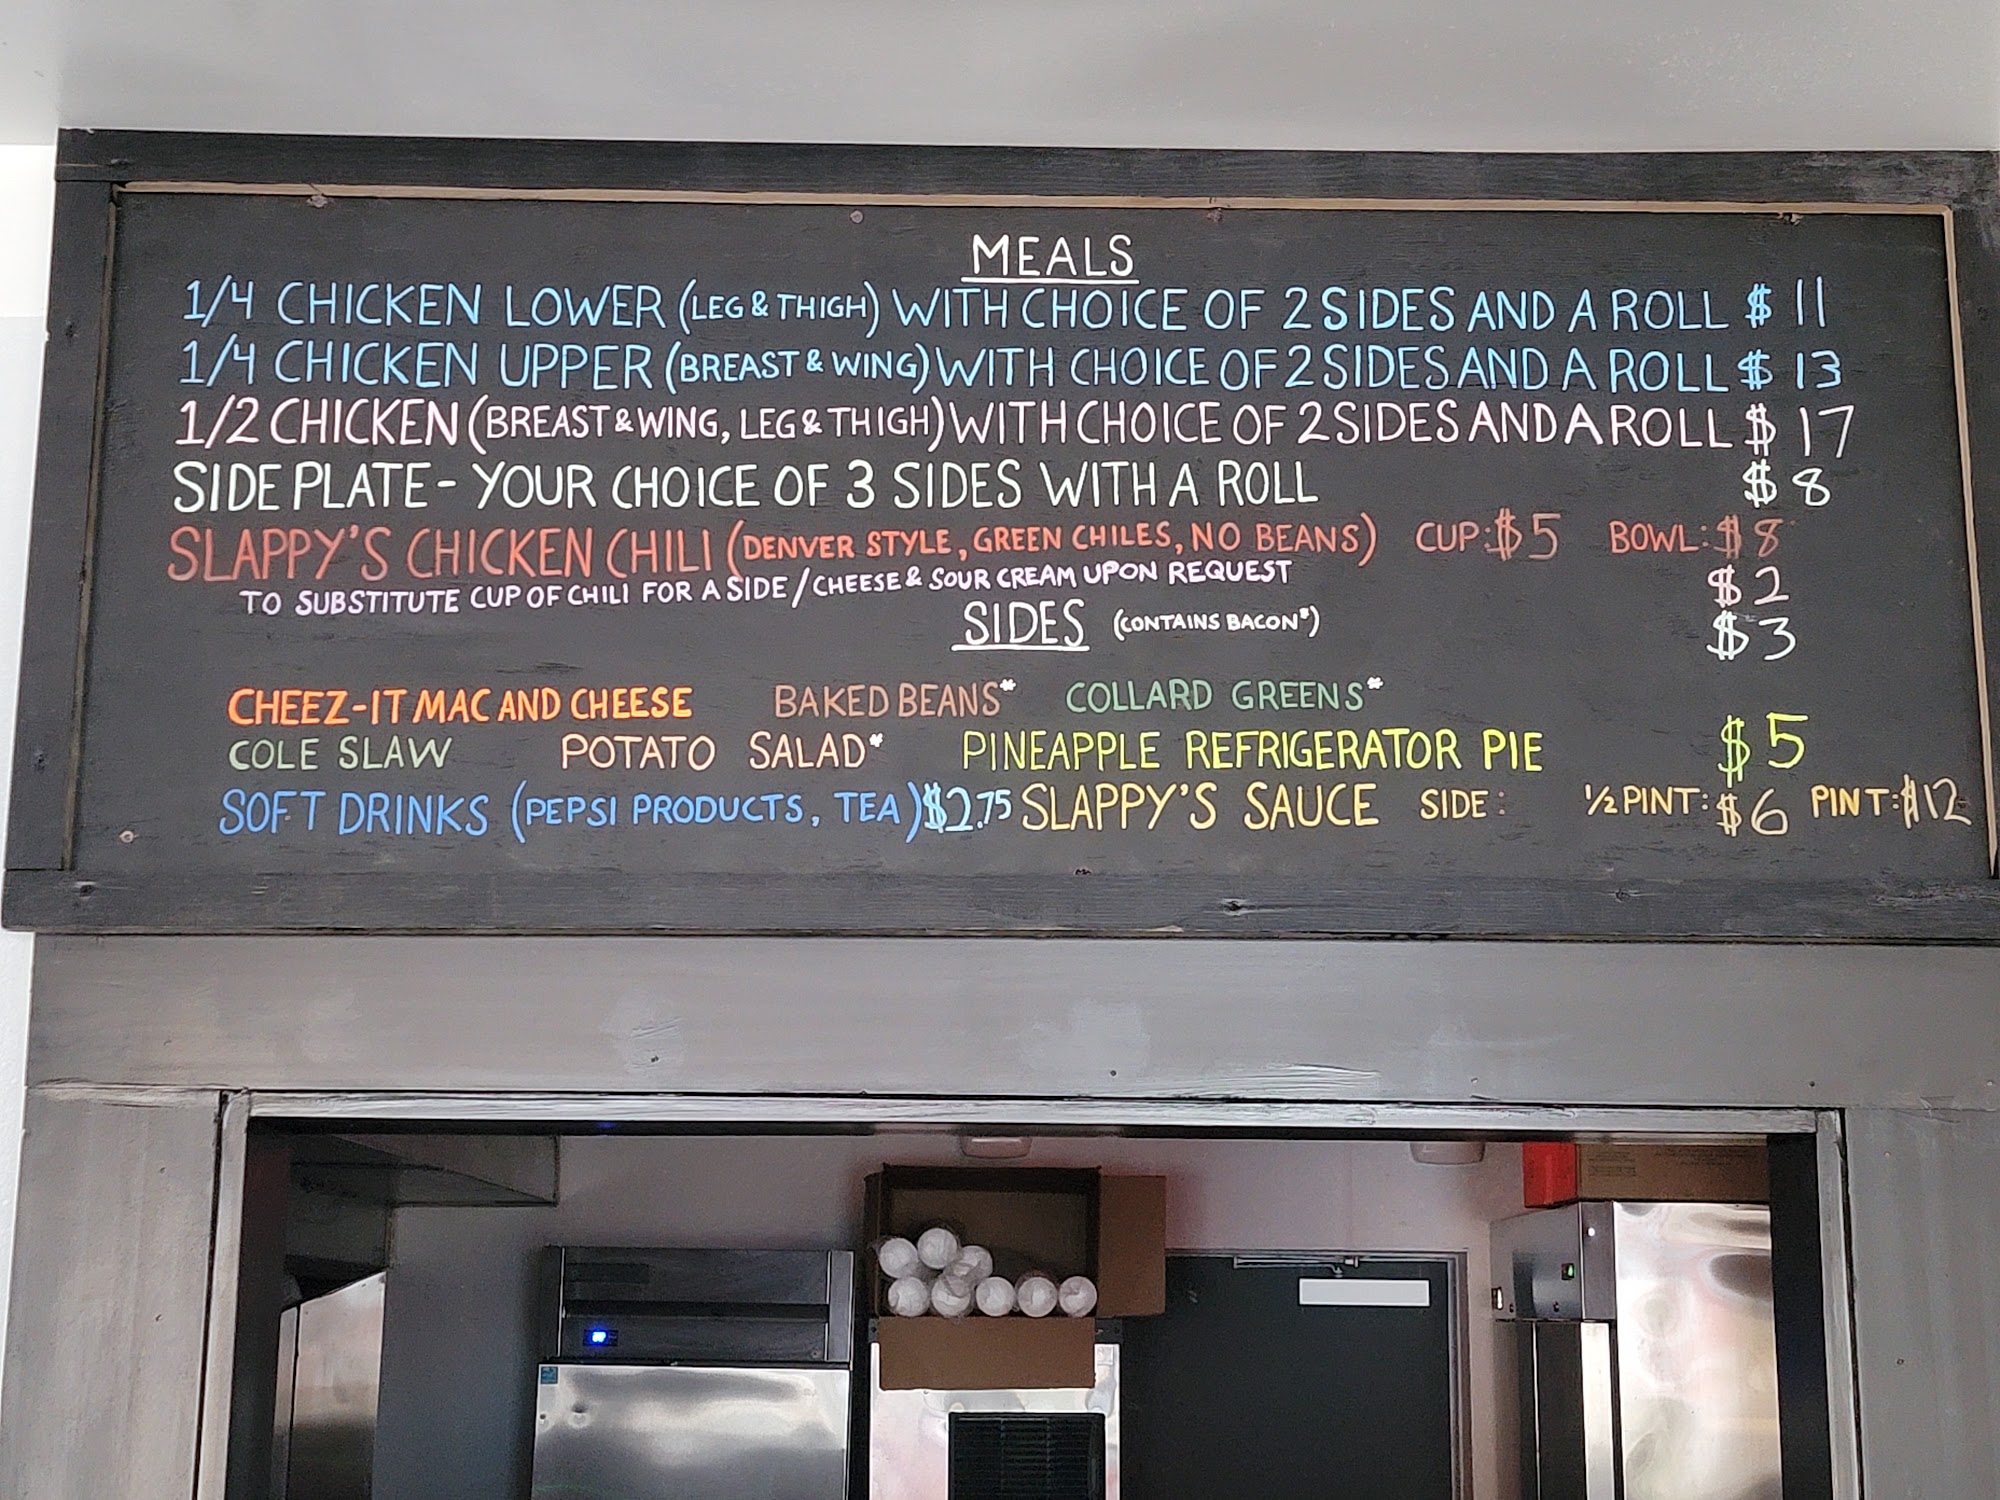 MEALS
1/4 CHICKEN LOWER (LEG & THIGH) WITH CHOICE OF 2 SIDES AND A ROLL $ 11
1/4 CHICKEN UPPER (BREAST & WING) WITH CHOICE OF 2 SIDES AND A ROLL $ 13
1/2 CHICKEN (BREAST & WING, LEG & THIGH) WITH CHOICE OF 2 SIDES AND A ROLL $ 17
SIDE PLATE - YOUR CHOICE OF 3 SIDES WITH A ROLL $ 8
SLAPPY'S CHICKEN CHILI (DENVER STYLE, GREEN CHILES, NO BEANS) CUP: $5 BOWL: $8
TO SUBSTITUTE CUP OF CHILI FOR A SIDE / CHEESE & SOUR CREAM UPON REQUEST $2
SIDES (CONTAINS BACON*) $3
CHEEZ-IT MAC AND CHEESE BAKED BEANS* COLLARD GREENS*
COLE SLAW POTATO SALAD* PINEAPPLE REFRIGERATOR PIE $5
SOFT DRINKS (PEPSI PRODUCTS, TEA) $2.75 SLAPPY'S SAUCE SIDE: ½ PINT: $6 PINT: $12